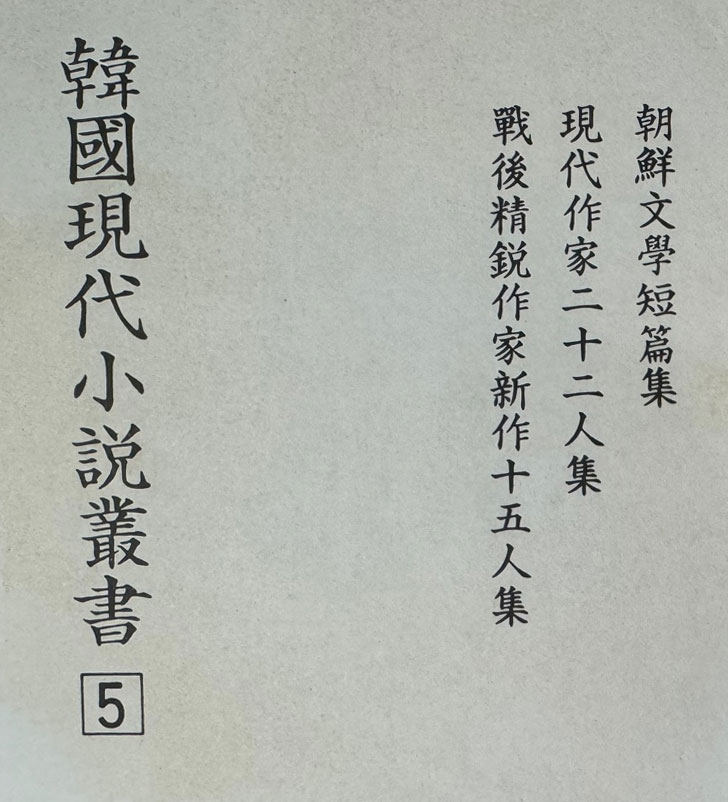 朝鮮文學短篇集
現代作家二十二人集
戰後精鋭作家新作十五人集
韓國現代小説叢書 5